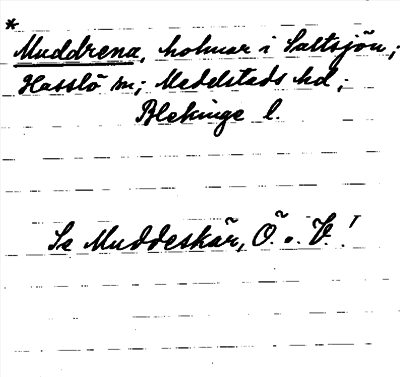 *
Muddrena, holmar i Saltsjön;
Hasslö sn; Medelstads hd;
Blekinge l.
Se Muddeskär, Ö. o. V.!